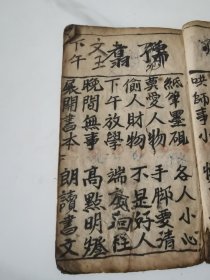 哄師事小
紙筆墨硯 各人小心
莫愛人物 手脚要清
偷人財物 不是好人
下午放學 端
晚間無事 高點明燈
展開書本 朗讀書文
儒
書
文王
下午